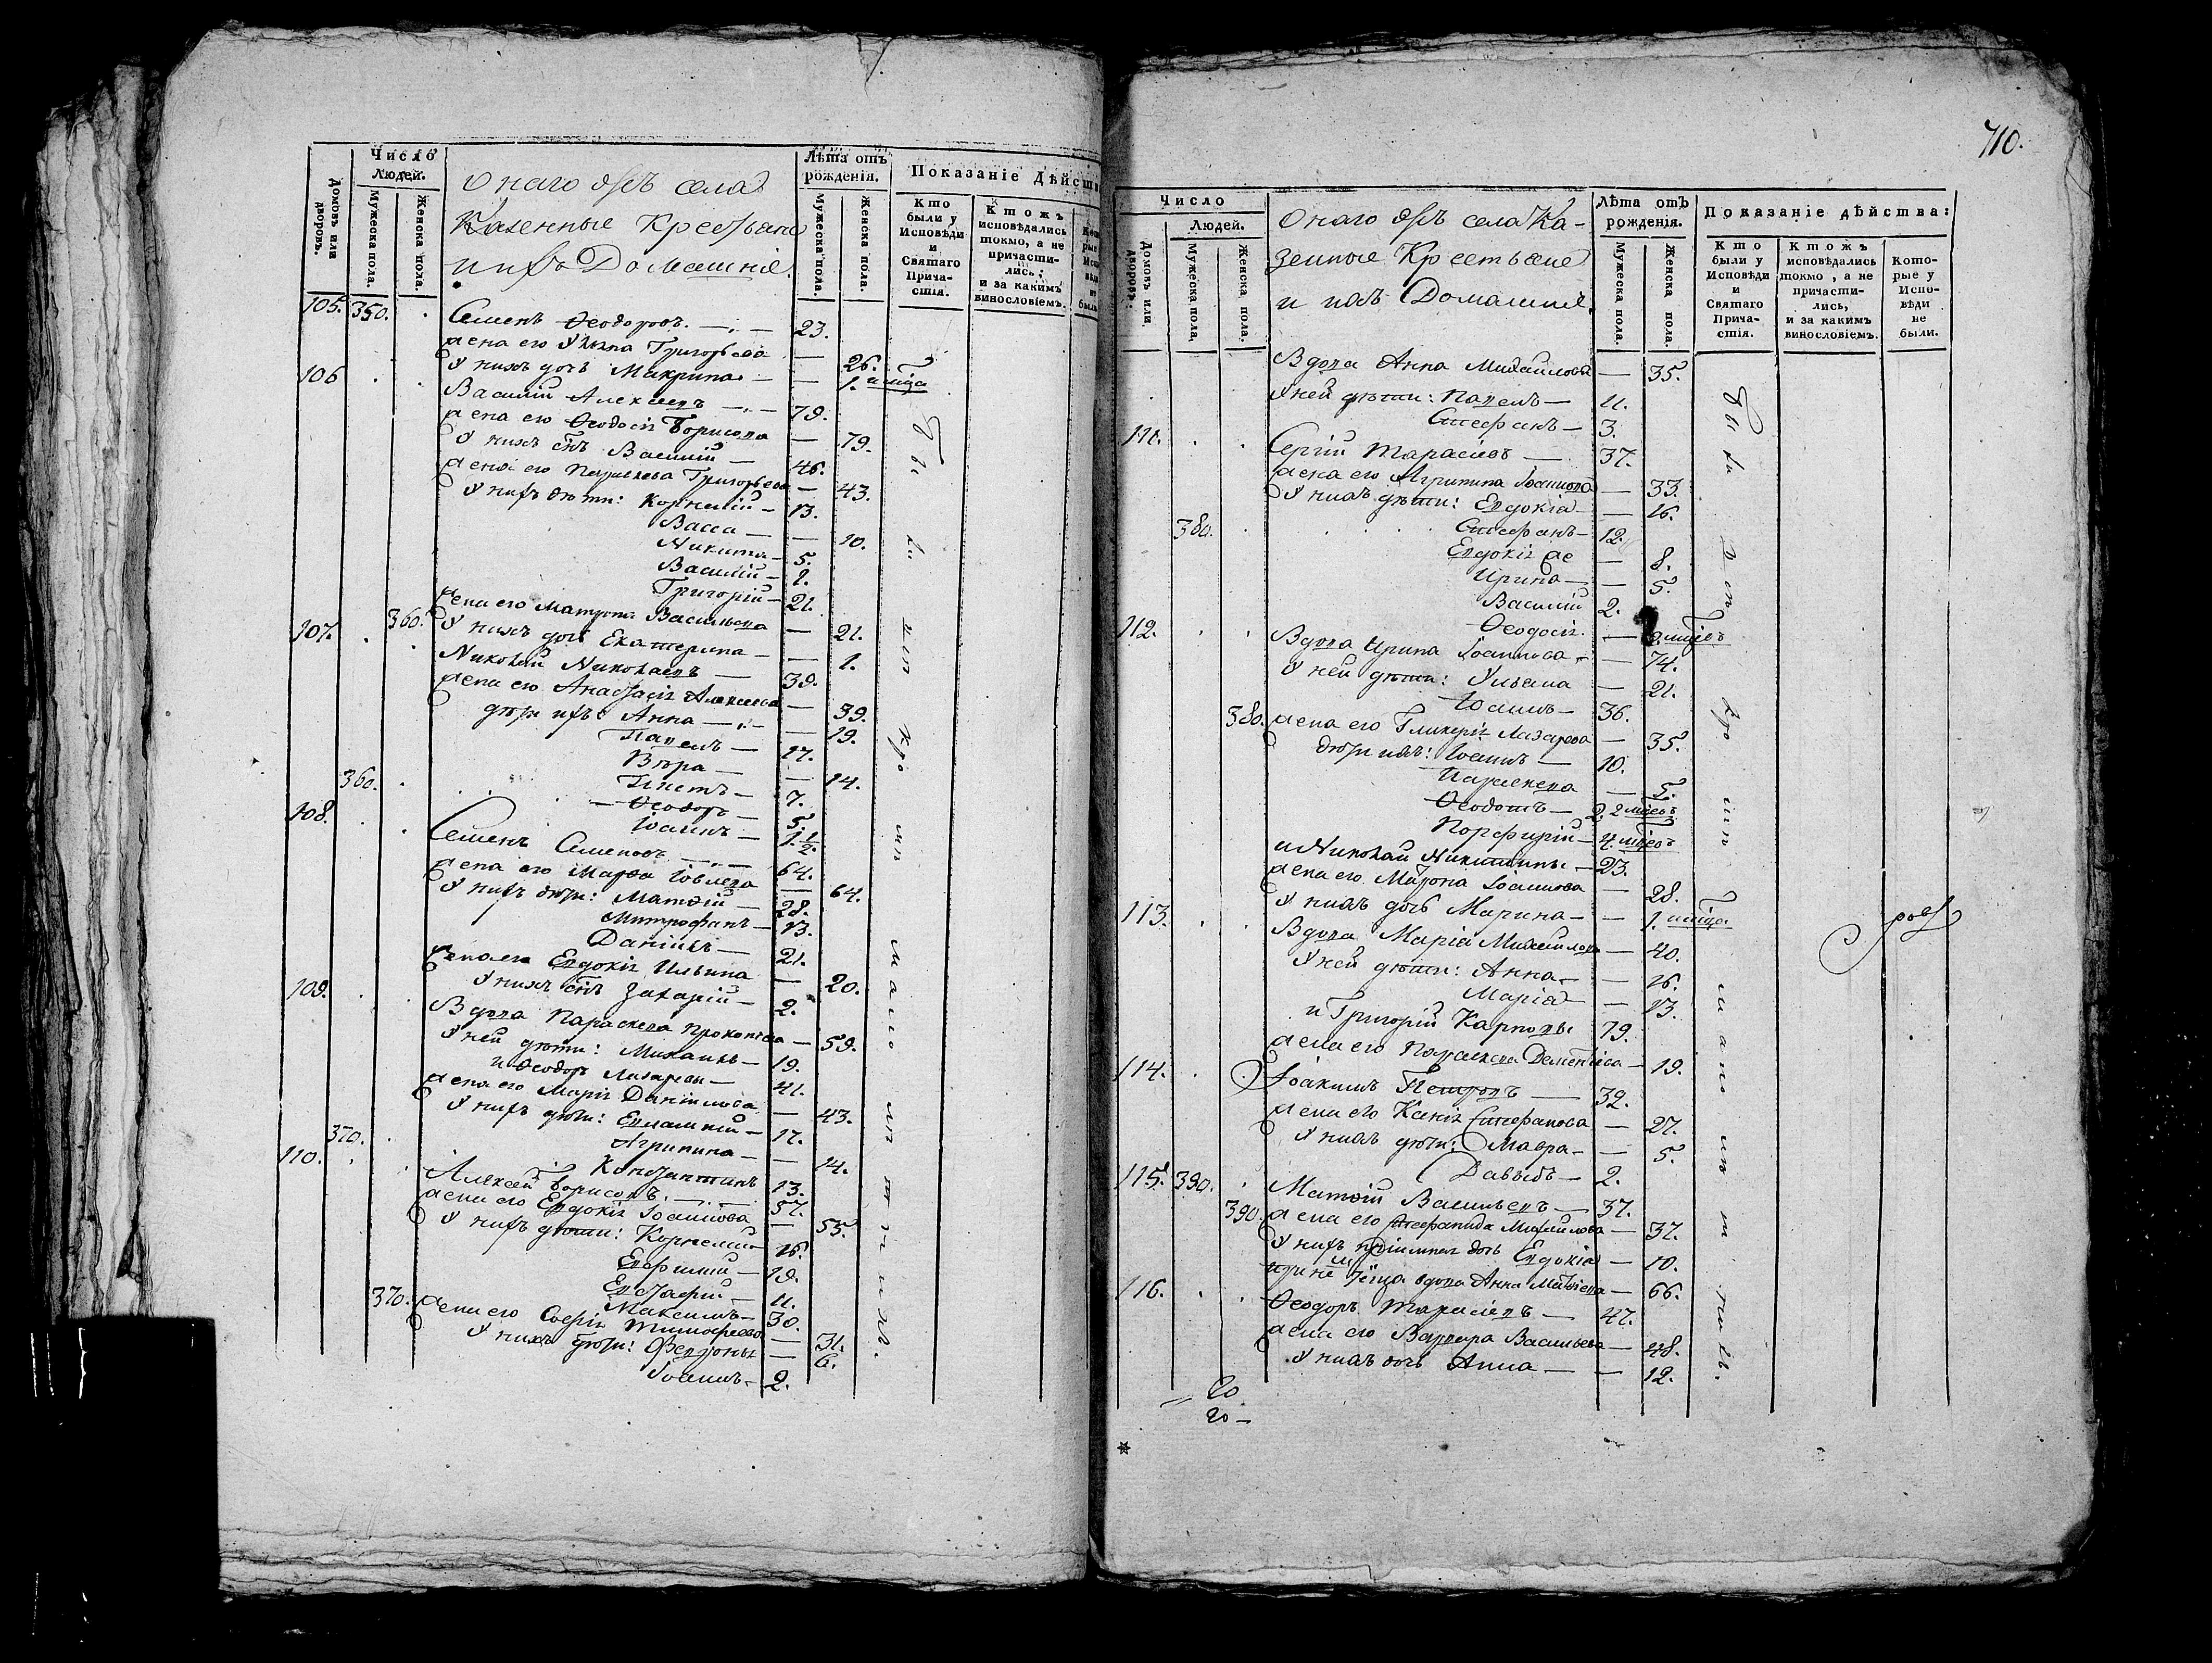 Число
Людей.
Домовъ или дворовъ.
Мужеска пола.
Женска пола.
Онаго жъ села
Казенные Крестьяне
и ихъ Домашнiе.
Лѣта отъ рожденія.
Мужеска пола.
Женска пола.
Показаніе Дѣйств
Кто были у Исповѣди и Святаго Причастія.
Ктожъ исповѣдались токмо, а не причастились, и за какимъ винословіемъ.
105. 350. Семенъ Ѳеодоровъ. — 23.
жена его Ульяна Григорьева — 26.
У нихъ дочь Макрина — 1. мѣсца
106 Василій Алексеевъ — 79.
жена его Ѳеодосія Борисова — 79.
У нихъ сынъ Василій — 46.
жена его Параскева Григорьева — 43.
У нихъ дѣти: Корнелій — 13.
Васса — 10.
Никита — 5.
Василій — 1.
Григорій — 21.
360. жена его Матрона Васильева — 21.
У нихъ дочь Екатерина — 1.
107. Николай Николаевъ — 39.
жена его Анастасія Алексеева — 39.
дѣти ихъ Анна — 19.
Павелъ — 17.
Вѣра — 14.
360. Игнатъ — 7.
Ѳеодоръ — 5.
Іоаннъ — 1 1/2.
108. Семенъ Семеновъ — 64.
жена его Марѳа Іовлева — 64.
У нихъ дѣти: Матѳій — 28.
Митрофанъ — 13.
Даніилъ — 21.
жена его Евдокія Ильина — 20.
У нихъ сынъ Захарій — 2.
109. Вдова Параскева Прокопіева — 59.
У ней дѣти: Михаилъ — 19.
и Ѳеодоръ Лазаревы — 41.
жена его Марія Даніилова — 43.
У нихъ дѣти: Евлампій — 17.
Агрипина — 14.
370. Константинъ 13.
110. Алексей Борисовъ — 57.
жена его Евдокія Іоаннова — 53.
У нихъ дѣти: Корнелій 16.
Евфимій — 19.
Евстафій — 11.
Максимъ — 30.
370. жена его Софія Тимофеева — 31.
У нихъ дѣти: Февронья — 6.
Іоаннъ — 2.
710.
Число
Людей.
Домовъ или дворовъ.
Мужеска пола.
Женска пола.
Онаго жъ села Ка-
зенные Крестьяне
и ихъ Домашніе.
Лѣта отъ рожденія.
Мужеска пола.
Женска пола.
Показаніе дѣйства:
Кто были у Исповѣди и Святаго Причастія.
Ктожъ исповѣдались токмо, а не причастились, и за какимъ винословіемъ.
Которые у Исповѣди не были.
Вдова Анна Михаилова — 35.
У ней дѣти: Павелъ — 11.
Стефанъ — 3.
111. Сергій Тарасіевъ — 37.
жена его Агрипина Іоаннова — 33.
У нихъ дѣти: Евдокіа — 16.
380. Стефанъ — 12.
Евдокія же — 8.
Ирина — 5.
Василій 2.
Ѳеодосія — мѣсцовъ
112. Вдова Ирина Іоаннова — 74.
У ней дѣти: Ульяна — 21.
Іоаннъ — 36.
380. жена его Гликерія Лазарева — 35.
дѣти ихъ: Іоаннъ — 10.
Параскева — 5.
Ѳеодотъ — 2. 2 мѣсцовъ
Порфирій — 4. мѣсцовъ
и Николай Никитины — 23.
жена его Матрона Іоаннова — 28.
У нихъ дочь Марина — 1. мѣсца
113. Вдова Марія Михаилова — 40.
У ней дѣти: Анна — 16.
Маріа — 13.
и Григорій Карповы 19.
жена его Параскева Дементіева — 19.
114. Іоакимъ Петровъ — 32.
жена его Ксенія Стефанова — 27.
У нихъ дѣти: Мавра — 5.
Давыдъ — 2.
115. 390. Матѳій Васильевъ — 37.
390. жена его Стефанида Михаилова — 37.
У нихъ пріимная дочь Евдокіа — 10.
при немъ теща вдова Анна Матѳіева — 66.
116. Ѳеодоръ Тарасіевъ — 47.
жена его Варвара Васильева — 48.
У нихъ дочь Анна — 12.
20
20 —